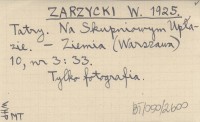 ZARZYCKI W. 1925.
Tatry. Na Skupniowym Upła-
zie. – Ziemia (Warszawa)
10, nr 3: 33.
Tylko fotografia.